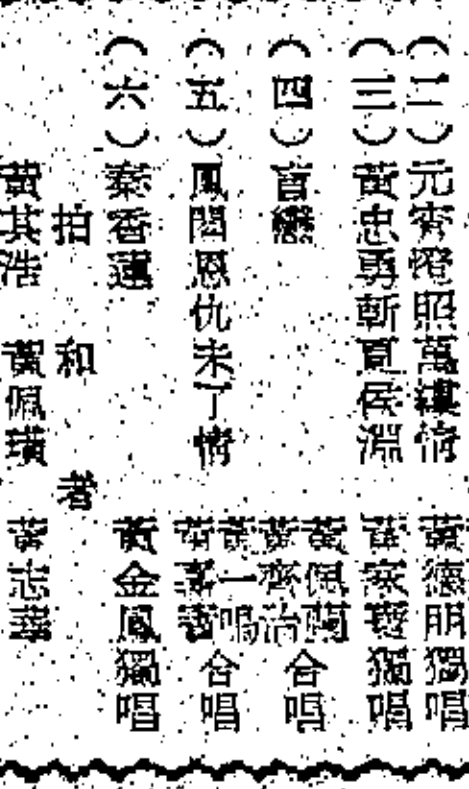 (二) 元宵燈照萬縷情 黃德明獨唱
(三) 黃忠勇斬夏侯淵 黃家 獨唱
(四) 盲戀 黃佩 黃齊治 合唱
(五) 鳳閣恩仇未了情 黃一鳴 合唱
(六) 秦香蓮 黃金鳳獨唱
拍和者
黃其浩 黃佩璜 黃志華